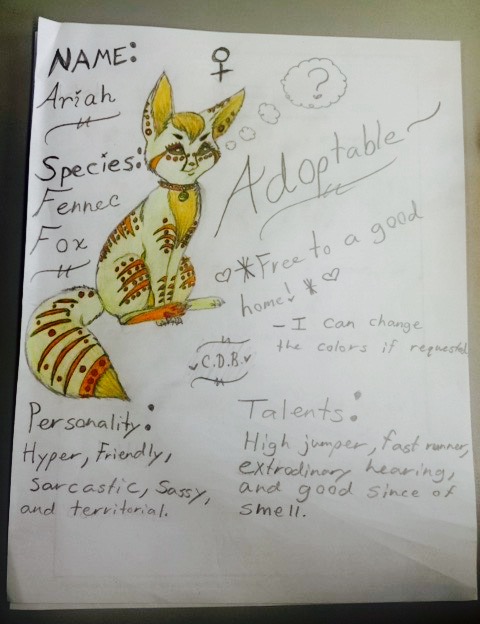 NAME:
Ariah
Species:
Fennec
Fox
?
Adoptable
♡*Free to a good
home!*♡
-I can change
the colors if requested
C.D.B.
Personality:
Hyper, Friendly,
Sarcastic, Sassy,
and territorial.
Talents:
High jumper, fast runner,
extrodinary hearing,
and good since of
smell.